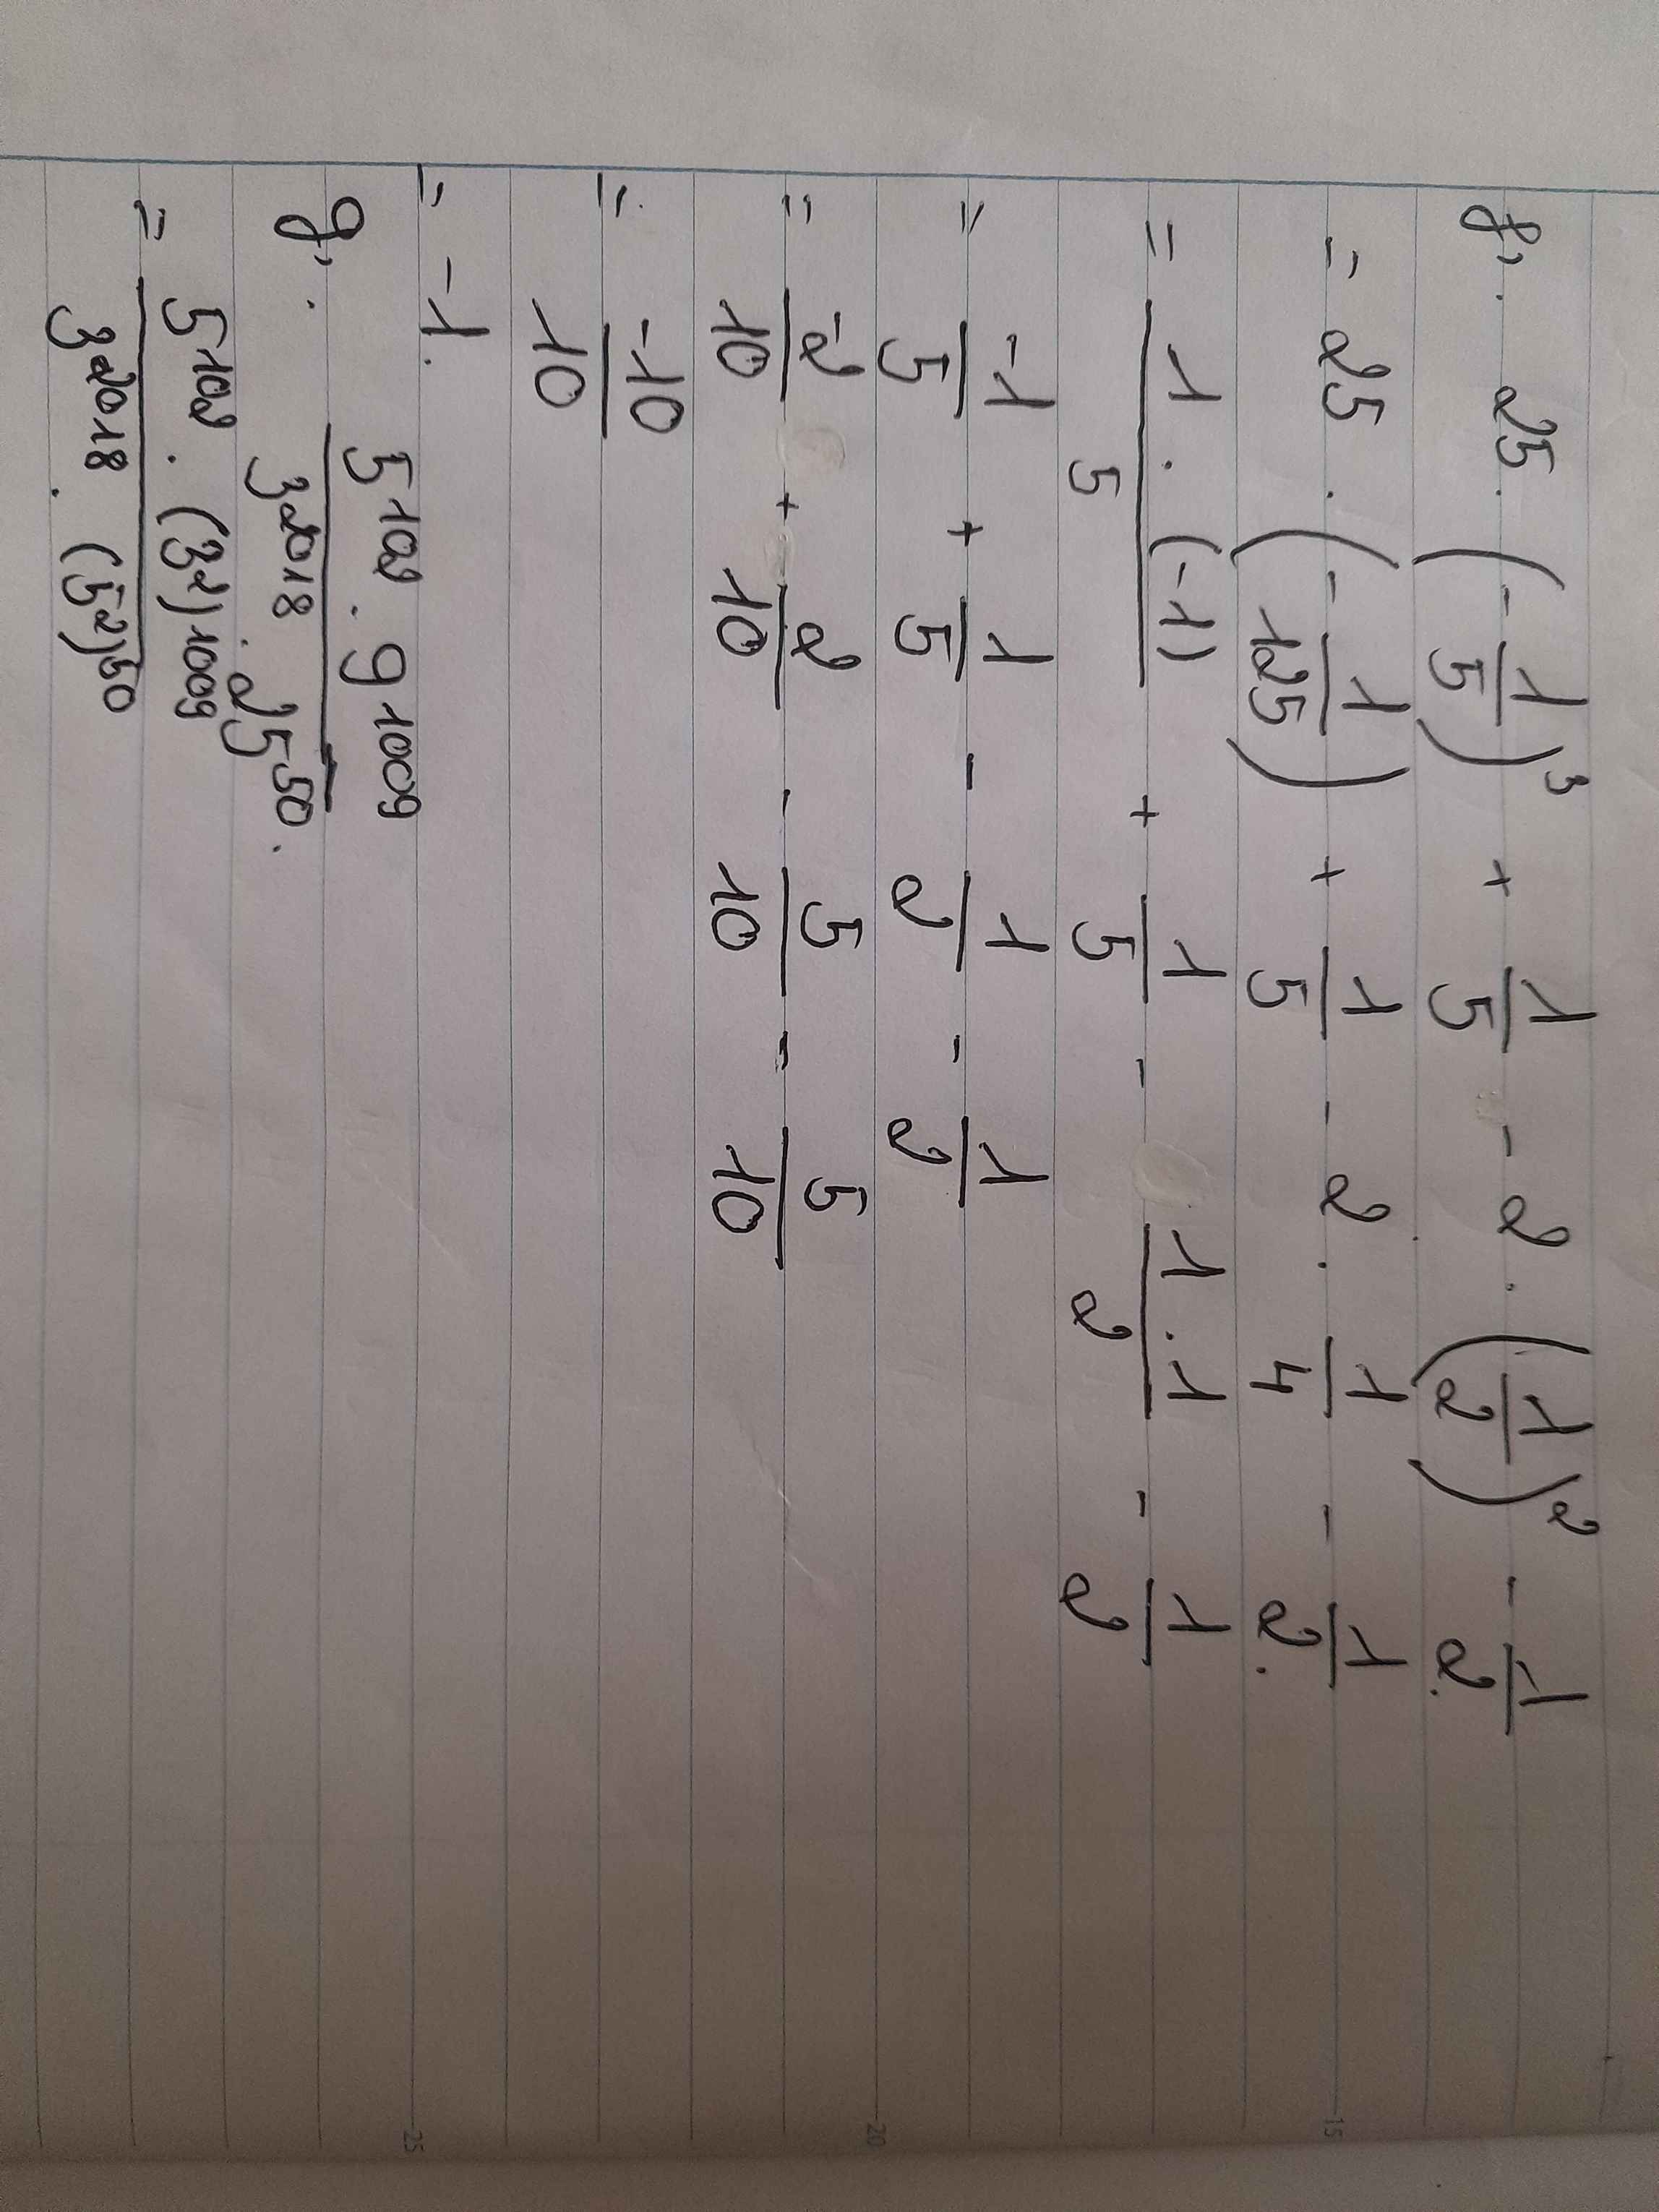 f, 25 . (-1/5)³ + 1/5 - 2 . (1/2)² - 1/2.
= 25 . (-1/125) + 1/5 - 2 . 1/4 - 1/2.
= 1 . (-1)/5 + 1/5 - 1 . 1/2 - 1/2
= -1/5 + 1/5 - 1/2 - 1/2
= -2/10 + 2/10 - 5/10 - 5/10
= -10/10
= -1.
g, 5¹⁰² . 9¹⁰⁰⁹/3²⁰¹⁸ . 25⁵⁰.
= 5¹⁰² . (3²)¹⁰⁰⁹/3²⁰¹⁸ . (5²)⁵⁰
15
20
25